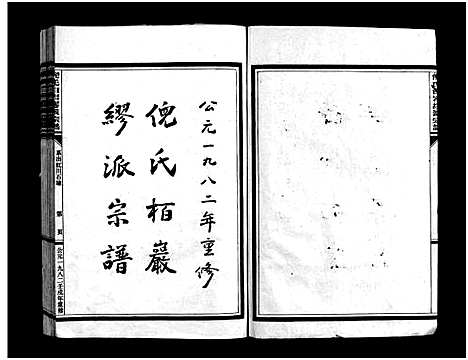 公元一九八二年重修
倪氏栢巖
繆派宗譜
公元一九八二壬戌年重修